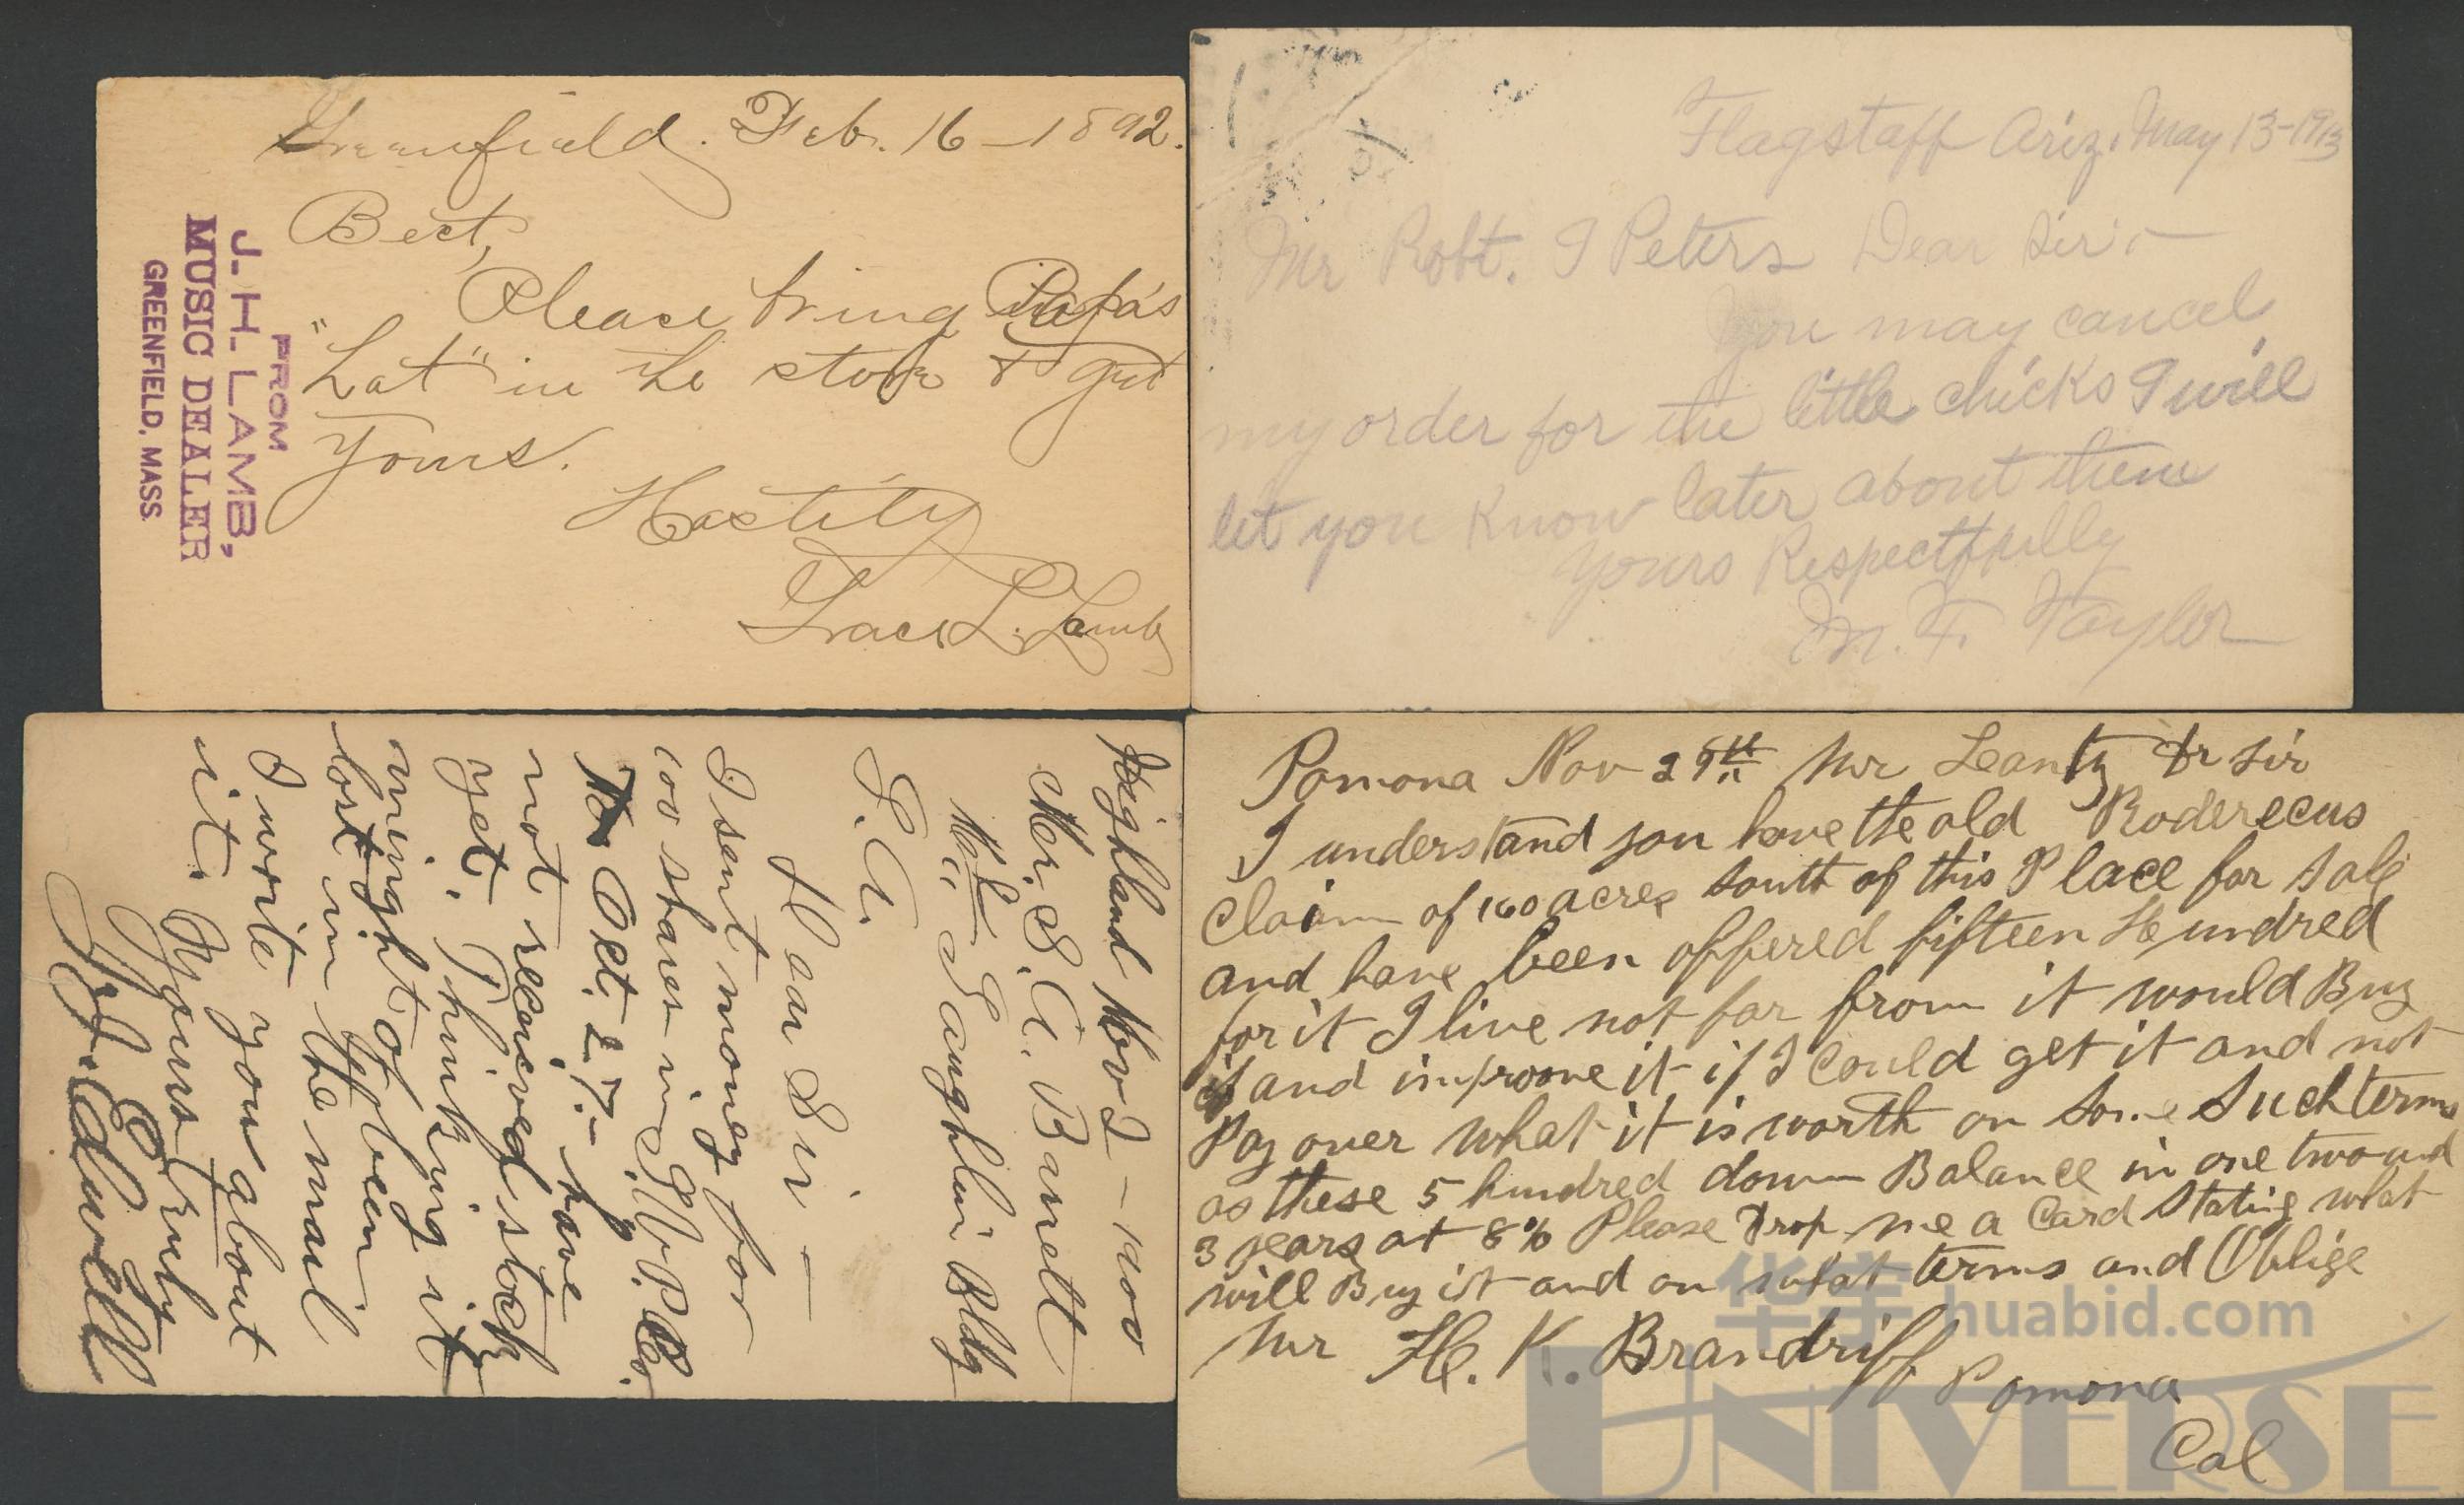 Greenfield. Feb. 16-1892.
Bert,
Please bring Papa's
"hat" in the store & get
yours.
Hastily
L. Lamb
FROM
J. H. LAMB,
MUSIC DEALER
GREENFIELD, MASS.
Flagstaff Ariz. May 13-1913
Mr Robt. I Peters Dear Sir:-
You may cancel
my order for the little chicks I will
let you know later about them
yours Respectfully
M. F. Taylor
Highland Nov 2-1900
Mr. S. A. Barrett
Laughlin Bldg
L. A.
Dear Sir-
I sent money for
100 shares in
Oct. 27.- have
not received stock
yet. Thinking it
minght of been
lost in the mail
I write you about
it. Yours Truly
Edwell
Pomona Nov 29th Mr Leantz Dr Sir
I understand you have the old Roderecus
claim of 160 acres south of this Place for sale
and have been offered fifteen Hundred
for it I live not far from it would Buy
it and improove it if I could get it and not
Pay over what it is worth on some Such terms
as these 5 hundred down Balance in one two and
3 years at 8% Please Drop me a Card Stating what
will Buy it and on what terms and Oblige
Mr H. K. Brandriff Pomona
Cal
华宇 huabid.com
UNIVERSE